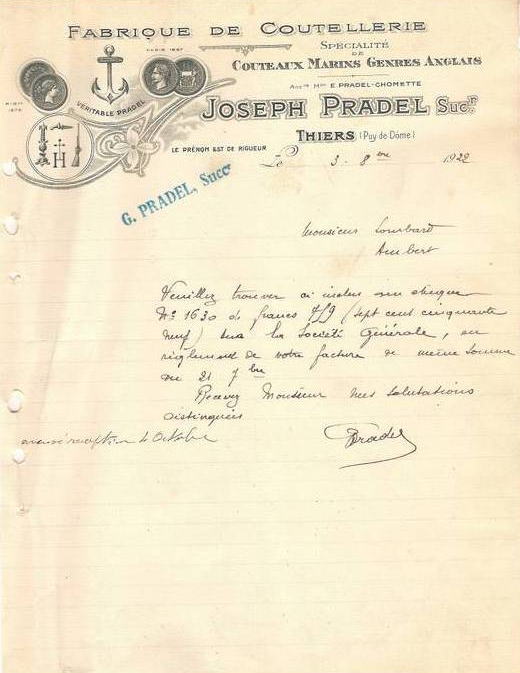 FABRIQUE DE COUTELLERIE
SPÉCIALITÉ
DE
COUTEAUX MARINS GENRES ANGLAIS
ANCNE MON E. PRADEL-CHOMETTE
JOSEPH PRADEL SUCR
THIERS, (Puy de Dôme)
PARIS 1867
VÉRITABLE PRADEL
H
LE PRÉNOM EST DE RIGUEUR
Le 3. 8bre 1922
G. PRADEL, Succr
Monsieur Lombard
Ambert
Veuillez trouver ci inclus un chèque
No 1630 de francs 759 (sept cent cinquante
neuf) sur la Société Générale, en
règlement de votre facture de même somme
du 21 7bre
Recevez Monsieur mes salutations
distinguées
Pradel
4 Octobre